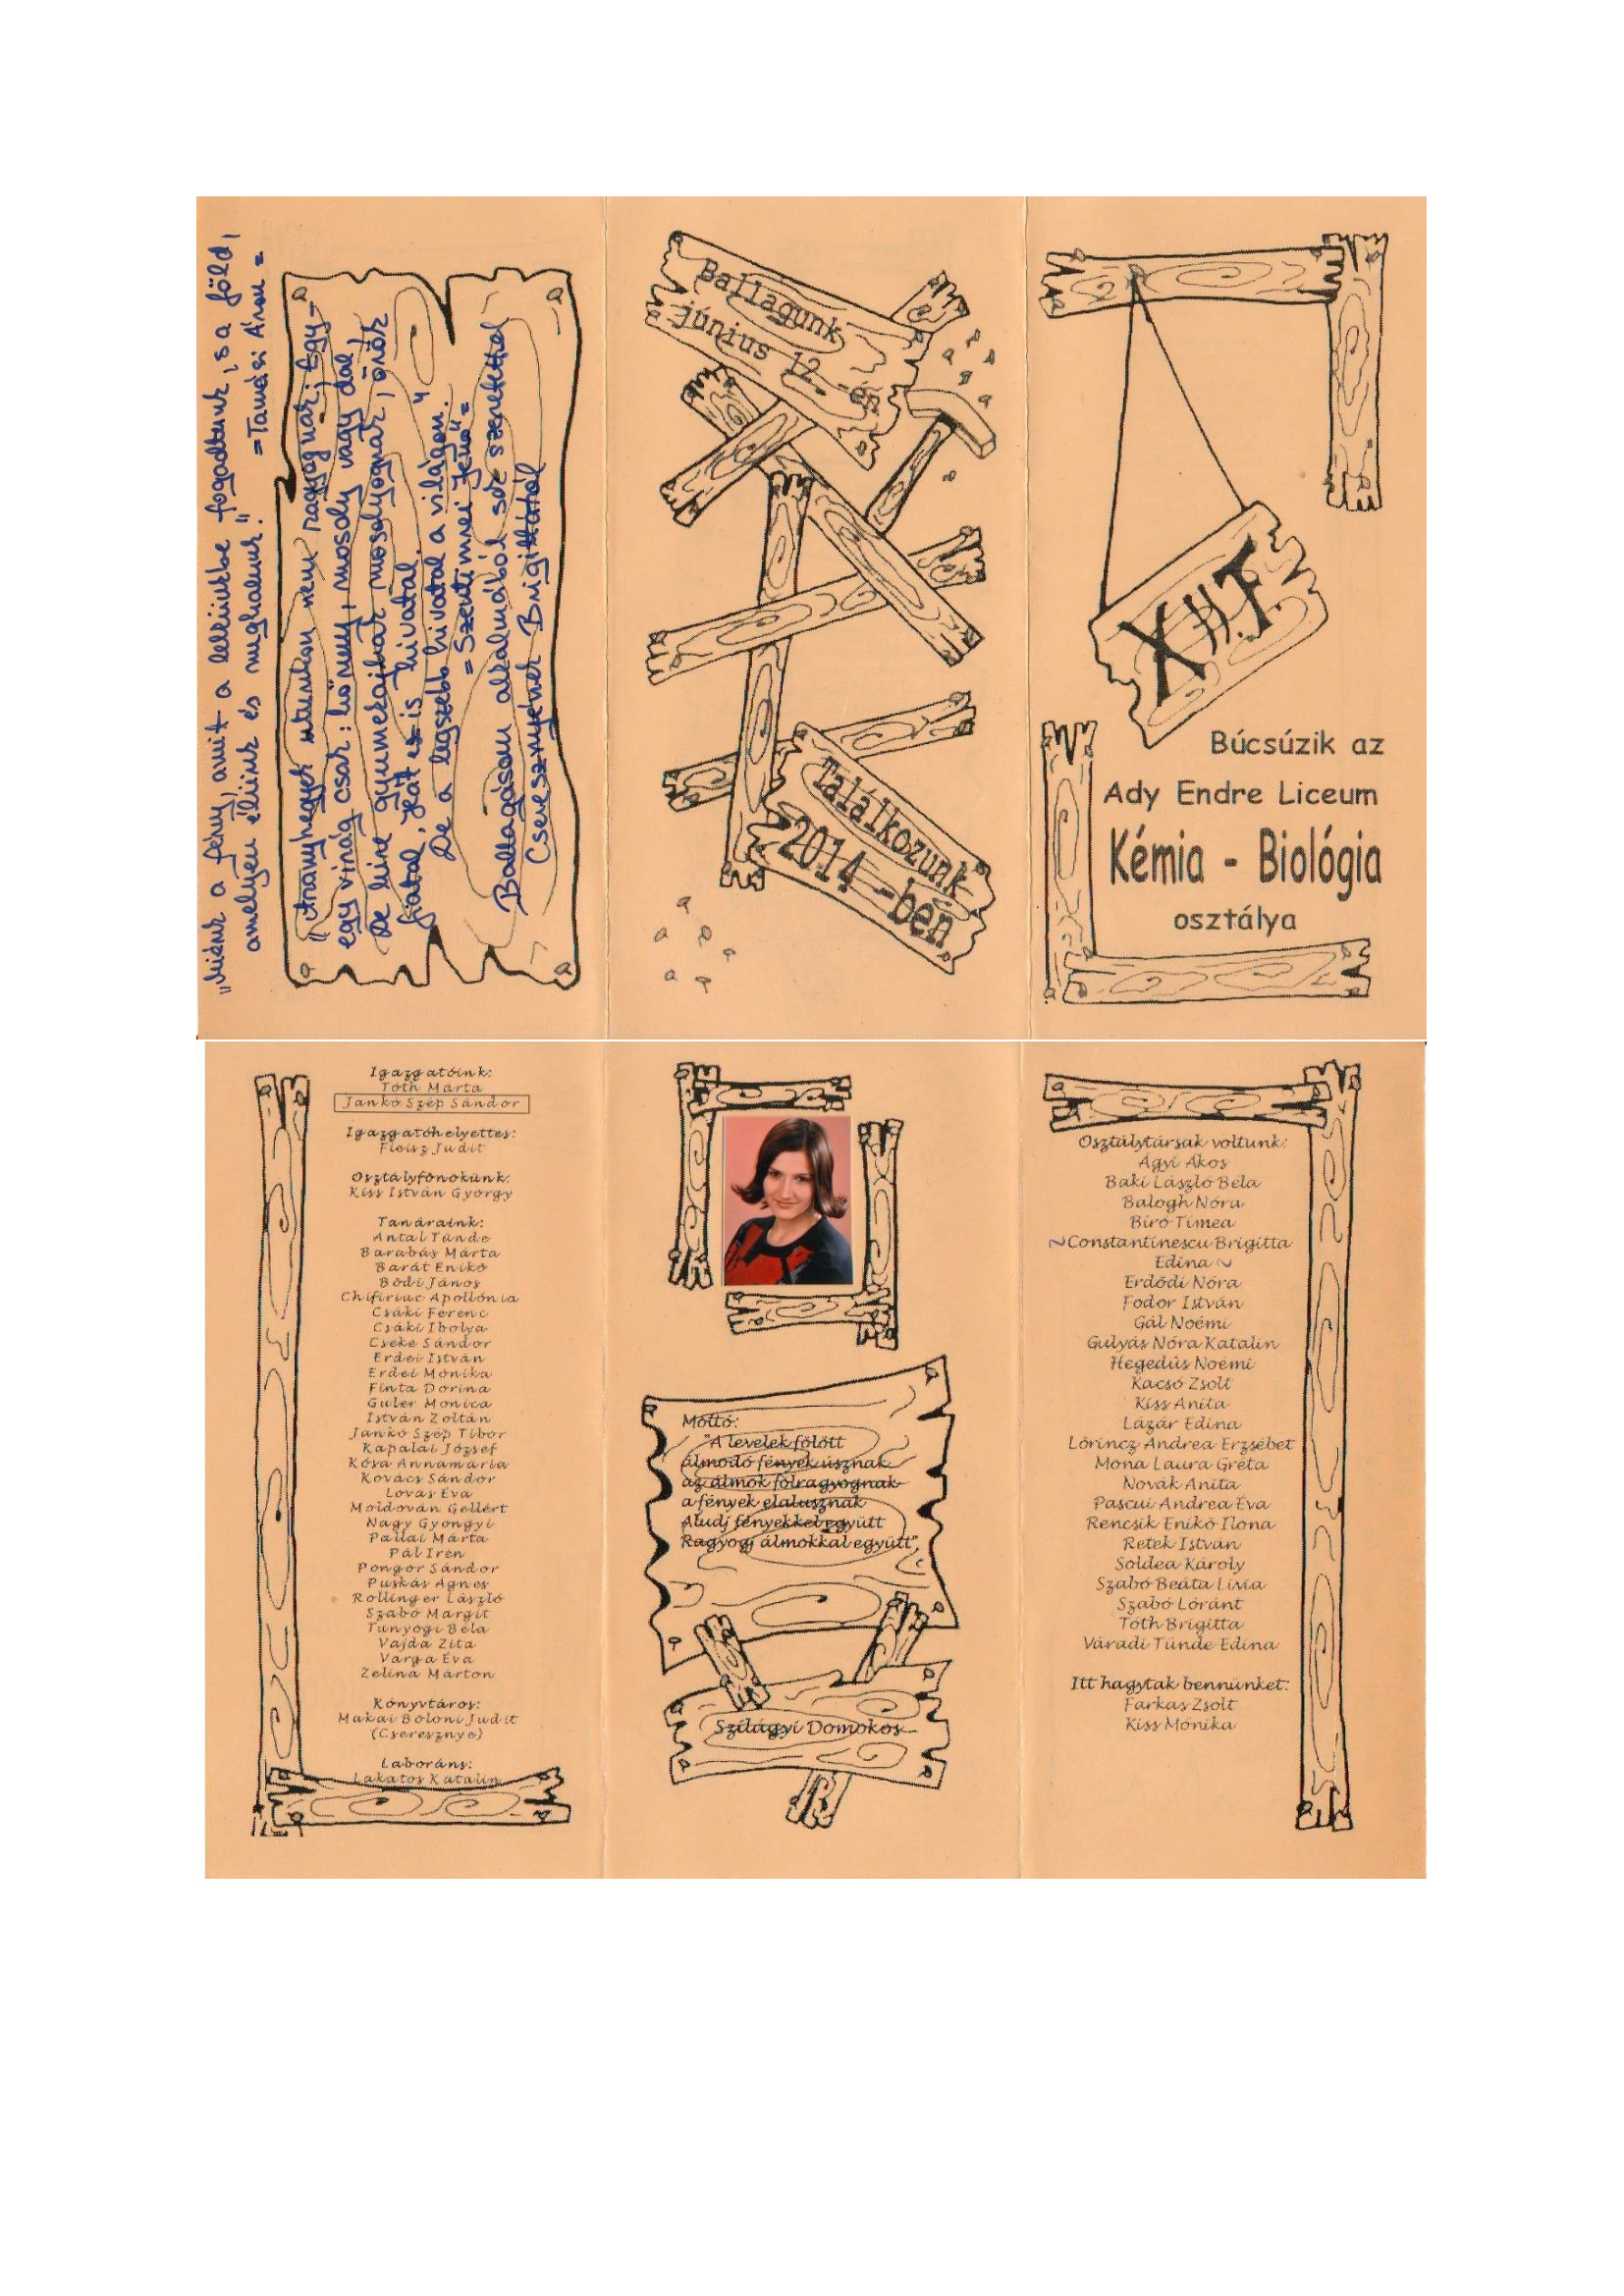 „Miénk a fény, amit a lelkünkbe fogadtunk, s a föld,
amelyen élünk és meghalunk."
=Tamási Áron=
„Aranyhegyek utunkon nem ragyognak; Egy-
egy virág csak: könny, mosoly vagy dal,
De kire gyermekajkak mosolyognak, örök
fiatal, ját és is hivatal.
De a legszebb hivatal a világon."
=Szentimrei Jenő=
Ballagásom alkalmából sok szeretettel
Cseresznyének Brigittától
Ballagunk
június 12 -én
Találkozunk
2014 -ben
XII.F
Búcsúzik az
Ady Endre Liceum
Kémia - Biológia
osztálya
Igazgatóink:
Tóth Márta
Jankó Szép Sándor
Igazgatóhelyettes:
Fleisz Judit
Osztályfőnökünk:
Kiss István György
Tanáraink:
Antal Tünde
Barabás Márta
Barát Enikő
Bődi János
Chifiriuc Apollónia
Csáki Ferenc
Csáki Ibolya
Cseke Sándor
Erdei István
Erdei Mónika
Finta Dorina
Guler Monica
István Zoltán
Jankó Szép Tibor
Kapalai József
Kósa Annamária
Kovács Sándor
Lovas Éva
Moldován Gellért
Nagy Gyöngyi
Pallai Márta
Pál Irén
Pongor Sándor
Puskás Ágnes
Rollinger László
Szabó Margit
Tunyogi Béla
Vajda Zita
Varga Éva
Zelina Márton
Könyvtáros:
Makai Bölöni Judit
(Cseresznye)
Laboráns:
Lakatos Katalin
Mottó:
"A levelek fölött
álmodó fények úsznak
az álmok fölragyognak
a fények elalusznak
Aludj fényekkel együtt
Ragyogj álmokkal együtt",
Szilágyi Domokos
Osztálytársak voltunk:
Ágyi Ákos
Baki László Béla
Balogh Nóra
Biró Tímea
~Constantinescu Brigitta
Edina~
Erdődi Nóra
Fodor István
Gál Noémi
Gulyás Nóra Katalin
Hegedüs Noémi
Kacsó Zsolt
Kiss Anita
Lázár Edina
Lőrincz Andrea Erzsébet
Mona Laura Gréta
Novák Anita
Pascui Andrea Éva
Rencsik Enikő Ilona
Retek István
Soldea Károly
Szabó Beáta Lívia
Szabó Lóránt
Tóth Brigitta
Váradi Tünde Edina
Itt hagytak bennünket:
Farkas Zsolt
Kiss Mónika